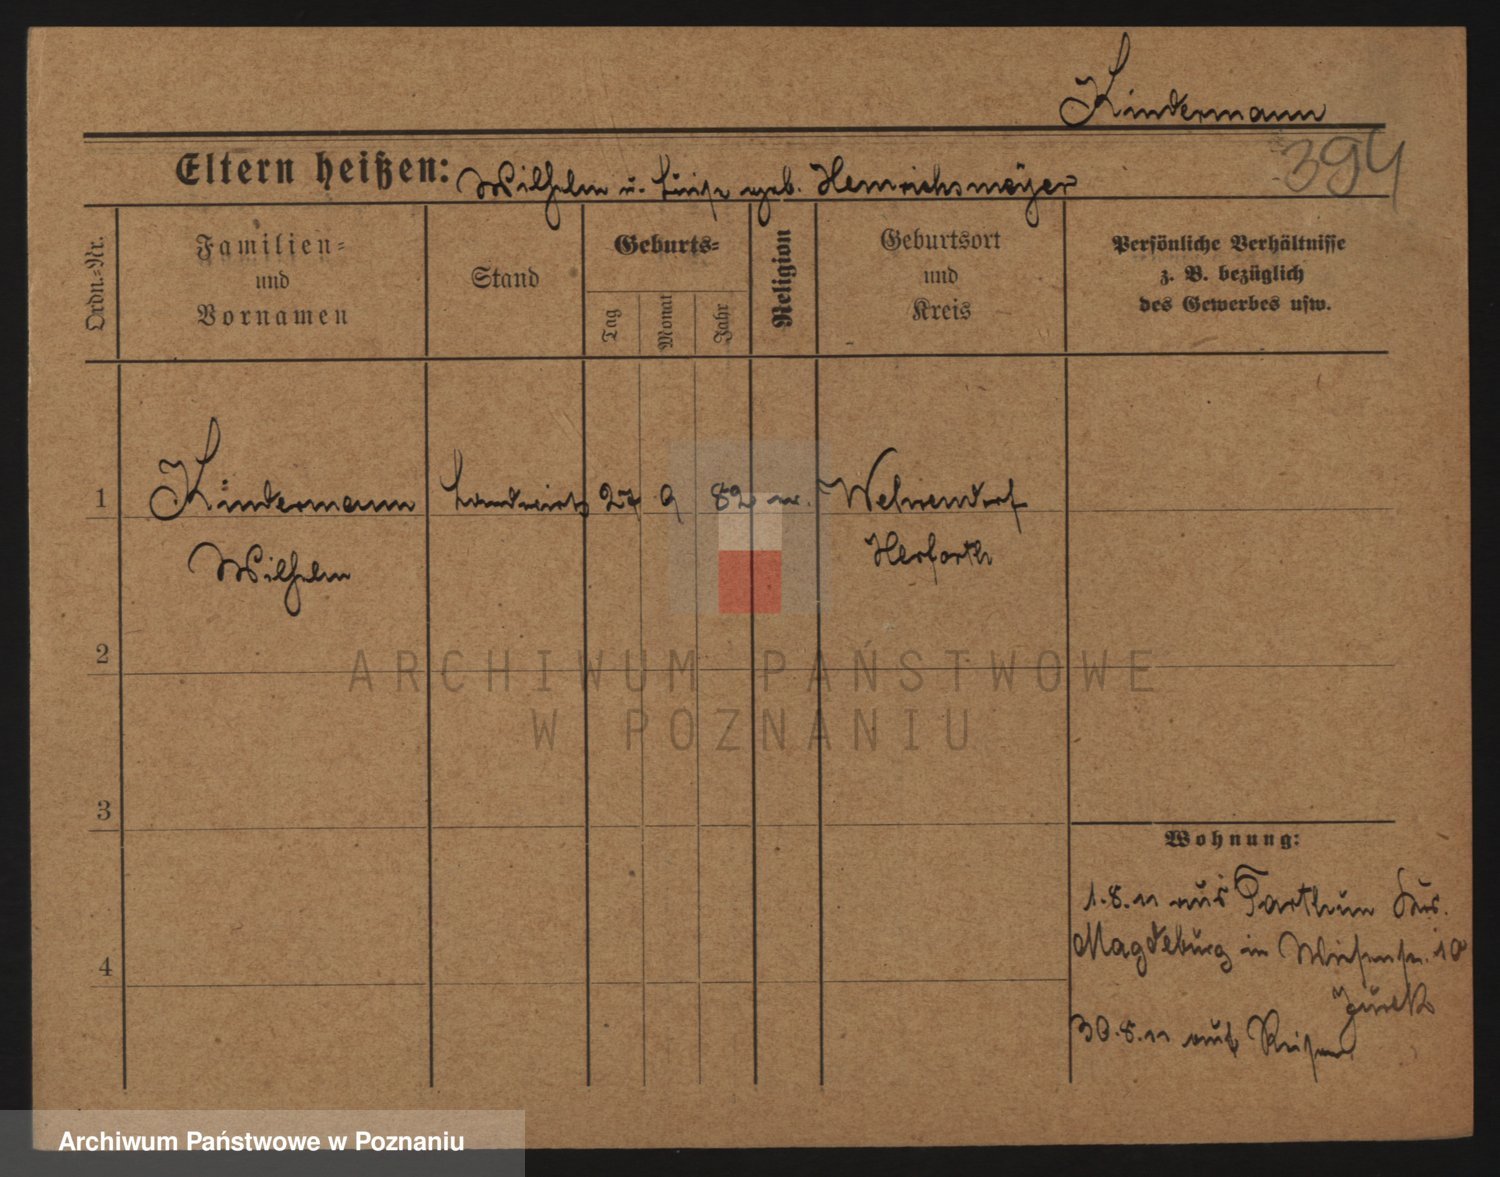 Kindermann
394
Eltern heißen: Wilhelm u. Luise geb. Henrichsmeyer
Ordn.-Nr.
Familien- und Vornamen
Stand
Geburts-
Tag
Monat
Jahr
Religion
Geburtsort und Kreis
Persönliche Verhältnisse
z. B. bezüglich
des Gewerbes usw.
1 Kindermann Landwirt 27 9 82 Wehrendorf
Wilhelm Herforth
2
3
4
Wohnung:
1.8.11 aus Tarthun
Magdeburg in Wiesenstr. 10
30.8.11 auf Reisen
ARCHIWUM PAŃSTWOWE
W POZNANIU
Archiwum Państwowe w Poznaniu